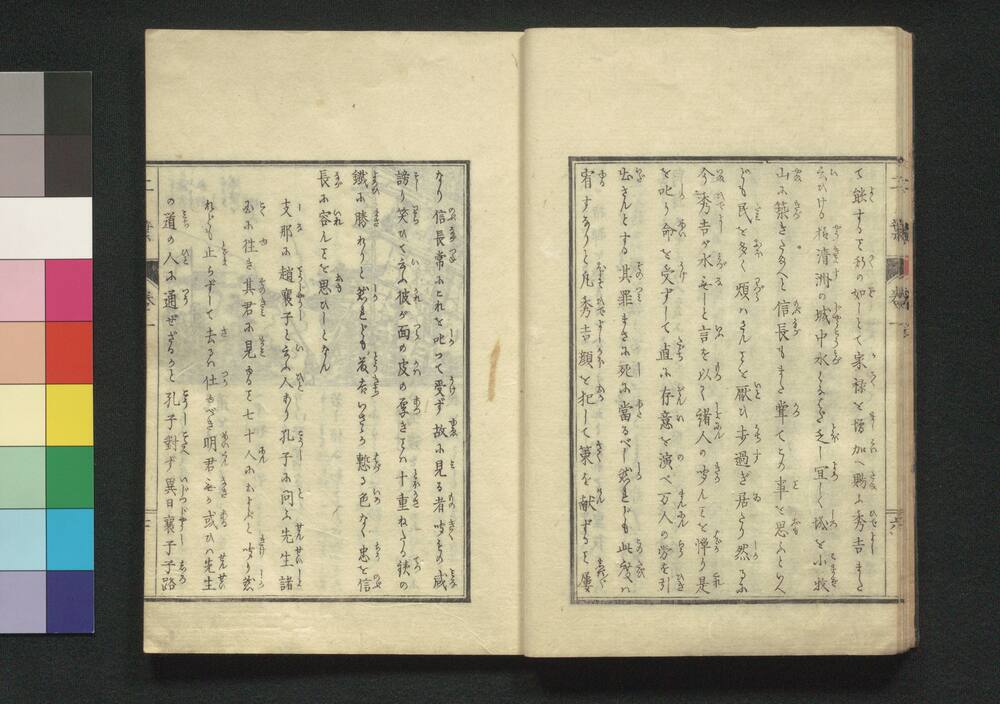 て餓するが如しとて家禄を増加へ賜ふ秀吉また
云ひける抑清洲の城中水ともしく乏し宜しく城を小牧
山に築きたまへと信長もまた嘗てこの事を思ふといへ
ども民を多く煩はさんことを厭ひ歩過ぎ居たり然るに
今秀吉が水なしと言を以て諸人の聞んことを憚り是
を叱り命を受ずして直に存意を演べ万人の労を引
出さんとする其罪まさに死に当るべし然れども此度は
宥するなりと凡秀吉顔を犯して策を献ずること屡
なり信長常にこれを叱つて受ず故に見る者聞もの咸
謗り笑ひて云ふ彼が面の皮の厚きこと十重ねたる鉄の
鐵に勝れりと然れども秀吉いさゝか慙る色なく忠を信
長に容んことを思ひしとなん
支那に趙襄子と云ふ人あり孔子に問ふ先生諸
国に往き其君に見ゆること七十人におよぶと聞り然
れども止らずして去るは仕ふべき明君なきか或ひは先生
の道の人に通ぜざるかと孔子對ず異日襄子子路